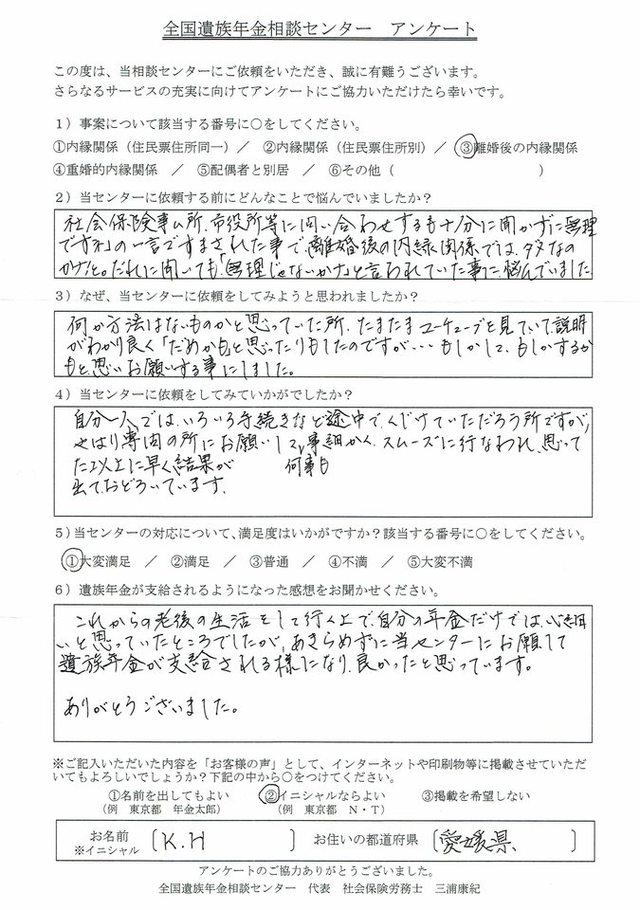 全国遺族年金相談センター アンケート
この度は、当相談センターにご依頼をいただき、誠に有難うございます。
さらなるサービスの充実に向けてアンケートにご協力いただけたら幸いです。
1）事案について該当する番号に○をしてください。
①内縁関係（住民票住所同一）／ ②内縁関係（住民票住所別）／ ③離婚後の内縁関係
④重婚的内縁関係 ／ ⑤配偶者と別居 ／ ⑥その他（ ）
2）当センターに依頼する前にどんなことで悩んでいましたか？
社会保険事ム所、市役所等に問い合わせするも十分に聞かずに「無理
ですネ」の一言ですまされた事で、離婚後の内縁関係では、ダメなの
かナと。だれに聞いても「無理じゃないかナ」と言われていた事に悩んでいました
3）なぜ、当センターに依頼をしてみようと思われましたか？
何か方法はないものかと思っていた所、たまたまユーチューブを見ていて、説明
がわかり良く「だめかもと思ったりもしたのですが…もしかして、もしかするか
もと思いお願いする事にしました。
4）当センターに依頼をしてみていかがでしたか？
自分一人では、いろいろ手続きなど途中でくじけていただろう所ですが、
やはり専門の所にお願いして、事細かく、スムーズに行なわれ、思って
た以上に早く結果が 何事も
出ておどろいています。
5）当センターの対応について、満足度はいかがですか？該当する番号に○をしてください。
①大変満足 ／ ②満足 ／ ③普通 ／ ④不満 ／ ⑤大変不満
6）遺族年金が支給されるようになった感想をお聞かせください。
これからの老後の生活をして行く上で、自分の年金だけでは、心細
いと思っていたところでしたが、あきらめずに当センターにお願して
遺族年金が支給される様になり、良かったと思っています。
ありがとうございました。
※ご記入いただいた内容を「お客様の声」として、インターネットや印刷物等に掲載させていただ
いてもよろしいでしょうか？下記の中から○をつけてください。
①名前を出してもよい ②イニシャルならよい ③掲載を希望しない
（例 東京都 年金太郎） （例 東京都 N・T）
お名前 （K.H ） お住いの都道府県 （愛媛県 ）
※イニシャル
アンケートのご協力ありがとうございました。
全国遺族年金相談センター 代表 社会保険労務士 三浦康紀